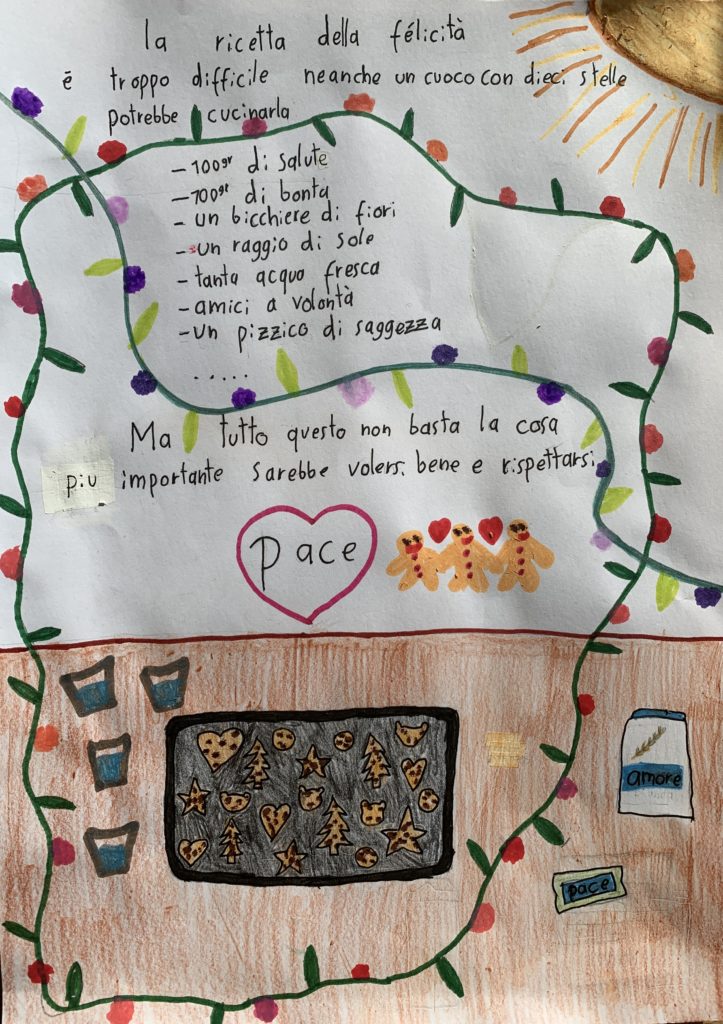 la ricetta della félicità
é troppo difficile neanche un cuoco con dieci stelle
potrebbe cucinarla
- 100gr di salute
- 100gr di bonta
- un bicchiere di fiori
- un raggio di sole
- tanta acqua fresca
- amici a volontà
- un pizzico di saggezza
.....
Ma tutto questo non basta la cosa
piu importante sarebbe volersi bene e rispettarsi
pace
amore
pace